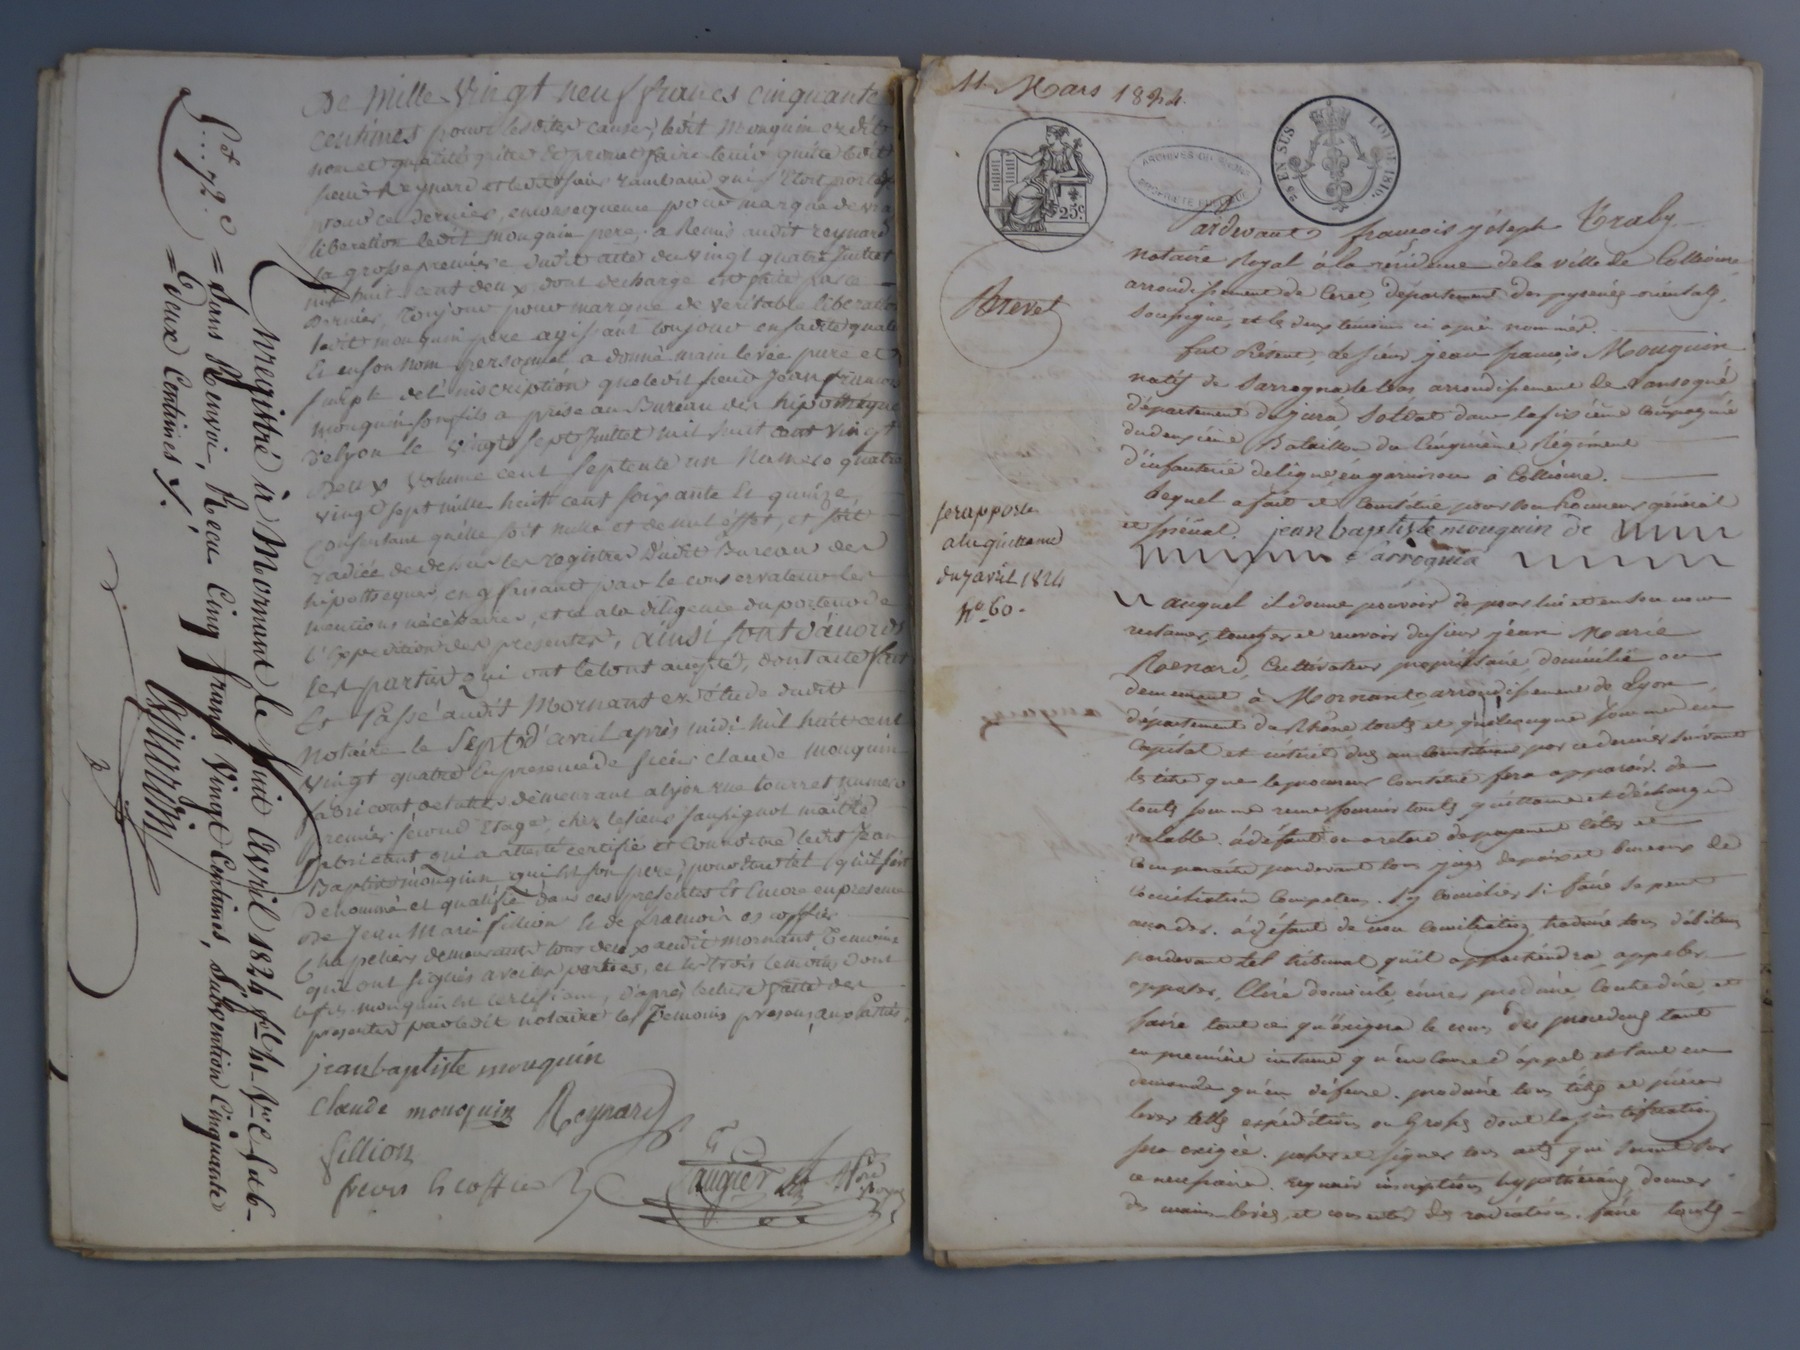 De mille vingt neuf francs cinquante
centimes pour lesdites causes, ledit mouquin exdit
nom et qualité quitte et promet faire tenir quitte ledit
sieur Reynard et ledit sieur rambaud qui s'étoit porté
pour ce dernier, en conséquence pour marque de vraie
liberation ledit mouquin pere a Remis audit reynard
la grosse première dudit acte du vingt quatre Juillet
mil huit cent deux dont decharge
dernier, toujour pour marque de veritable liberation
ledit mouquin pere agissant toujour en sadite qualité
Et en son nom personnel a donné main levée pure et
simple de l'inscription que ledit sieur Jean françois
mouquin son fils a prise au Bureau des hipotheques
de lyon le vingt sept Juillet mil huit cent vingt
Deux volume cent septente un Numero quatre
vingt sept mille huit cent soixante Et quinze,
Consentant quelle soit nulle et de nul éffet, et soit
radiée de dessus les registres dudit Bureau des
hipotheques, en y faisant par le conservateur les
mentions nécéssaires, et ce a la diligence du porteur de
l'expedition des presentes, ainsi sont d'acord
les parties qui ont le tout accepté, dont acte fait
Et Passé audit Mornant en l'étude dudit
Notaire le Sept d'avril après midi mil huit cent
vingt quatre En presence de sieur claude mouquin
fabricant de tulles demeurant a lyon rue tourret numero
premier second Etage, chez le sieur maître
fabricant qui a attesté certifié et connoitre ledit Jean
Baptiste mouquin qui est son pere, pour être tel qu'il s'est
Denommé et qualifié dans ces présentes Et Encore en presence
De Jean Marie fillion Et de françois es coffier
Chapeliers demeurants tous deux audit mornant, Temoins
qui ont signés avec les parties, et les trois temoins dont
ledit mouquin est certificateur, d'après lecture faite des
presentes par ledit notaire les Temoins presens aux Parties.
jean baptiste mouquin
claude mouquin Reynard
fillion
freçois Escoffier
faugier Nre
Royal
Enregistré à Mornant le huit Avril 1824 Sub-
= dans Renvoi, Recu Cinq francs vingt Centimes, Subvention Cinquante
= Deux Centimes
5.. 72 c
Girardin
11 Mars 1824.
25 EN SUS LOI DE 1816.
25c
ARCHIVES DU RHONE
PROPRIETE PUBLIQUE
Brevet
Pardevant françois joseph Traby
notaire Royal à la résidence de la ville de Collioure
arrondissement de Ceret, département des pyrénées-orientales,
soussigné, et les deux témoins ci après nommés.
fut Présent, le sieur jean françois Mouquin
natif de Sarrogna le bas arrondissement de
département du jura, Soldat dans la troisième Compagnie
du deuxième Bataillon du Cinquième Régiment
d'infanterie de ligne, en garnison à Collioure.
Lequel a fait et constitué pour son Procureur général
et spécial. jean baptiste mouquin de
Sarrogna
auquel il donne pouvoir de pour lui et en son nom
reclamer, toucher et recevoir du sieur jean Marie
Raenard, Cultivateur propriétaire, domicilié ou
demeurant à Mornant arrondissement de Lyon,
département du Rhône toute et quelconque somme en
Capital et intérêt dus au constituant par ce dernier suivant
le titre que le procureur constitué fera apparoir. de
toute somme recue fournir toute quittance et décharge
valable. à défaut ou a retard de payement citer et
comparaître pardevant tous juges de paix et bureaux de
Conciliation Compétens. S'y concilier si faire se peut
accorder. à défaut de non conciliation traduire tous débiteurs
pardevant tel tribunal qu'il appartiendra, appeler
opposer, élire domicile, écrire produire, contredire, et
faire tout ce qu'exigera le cours des procedures tant
en première instance qu'en cour d'appel et tant en
demande qu'en défense. produire tous titres et pièces
lever telle expéditions ou Grosses dont la justification
sera exigée. passer et signer tous acte qui seront sur
ce necessaire. requerir inscriptions hypothécaires donner
des main-levées, et consentir des radiations. faire toute
Se rapporte
a la quittance
du 7 avril 1824
No 60.